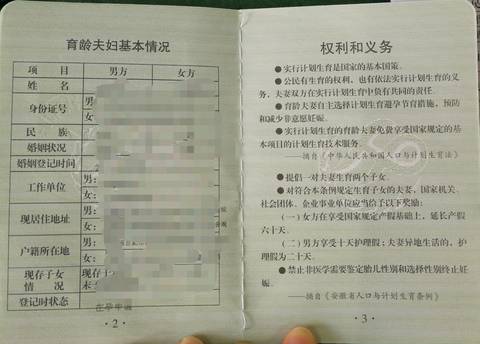 育龄夫妇基本情况
项 目 男方 女方
姓 名
身份证号 男:
女:
民 族
婚姻状况
婚姻登记时间
工作单位 男:
女:
现居住地址 男:
女:
户籍所在地 男:
女:
现存子女 现存子
情 况
登记时状态
· 2 ·
权利和义务
●实行计划生育是国家的基本国策。
●公民有生育的权利，也有依法实行计划生育的义
务，夫妻双方在实行计划生育中负有共同的责任。
●育龄夫妻自主选择计划生育避孕节育措施，预防
和减少非意愿妊娠。
●实行计划生育的育龄夫妻免费享受国家规定的基
本项目的计划生育技术服务。
——摘自《中华人民共和国人口与计划生育法》
●提倡一对夫妻生育两个子女。
●对符合本条例规定生育子女的夫妻，国家机关、
社会团体、企业事业单位应当给予以下奖励：
（一）女方在享受国家规定产假基础上，延长产假
六十天。
（二）男方享受十天护理假；夫妻异地生活的，护
理假为二十天。
●禁止非医学需要鉴定胎儿性别和选择性别终止妊
娠。
——摘自《安徽省人口与计划生育条例》
· 3 ·